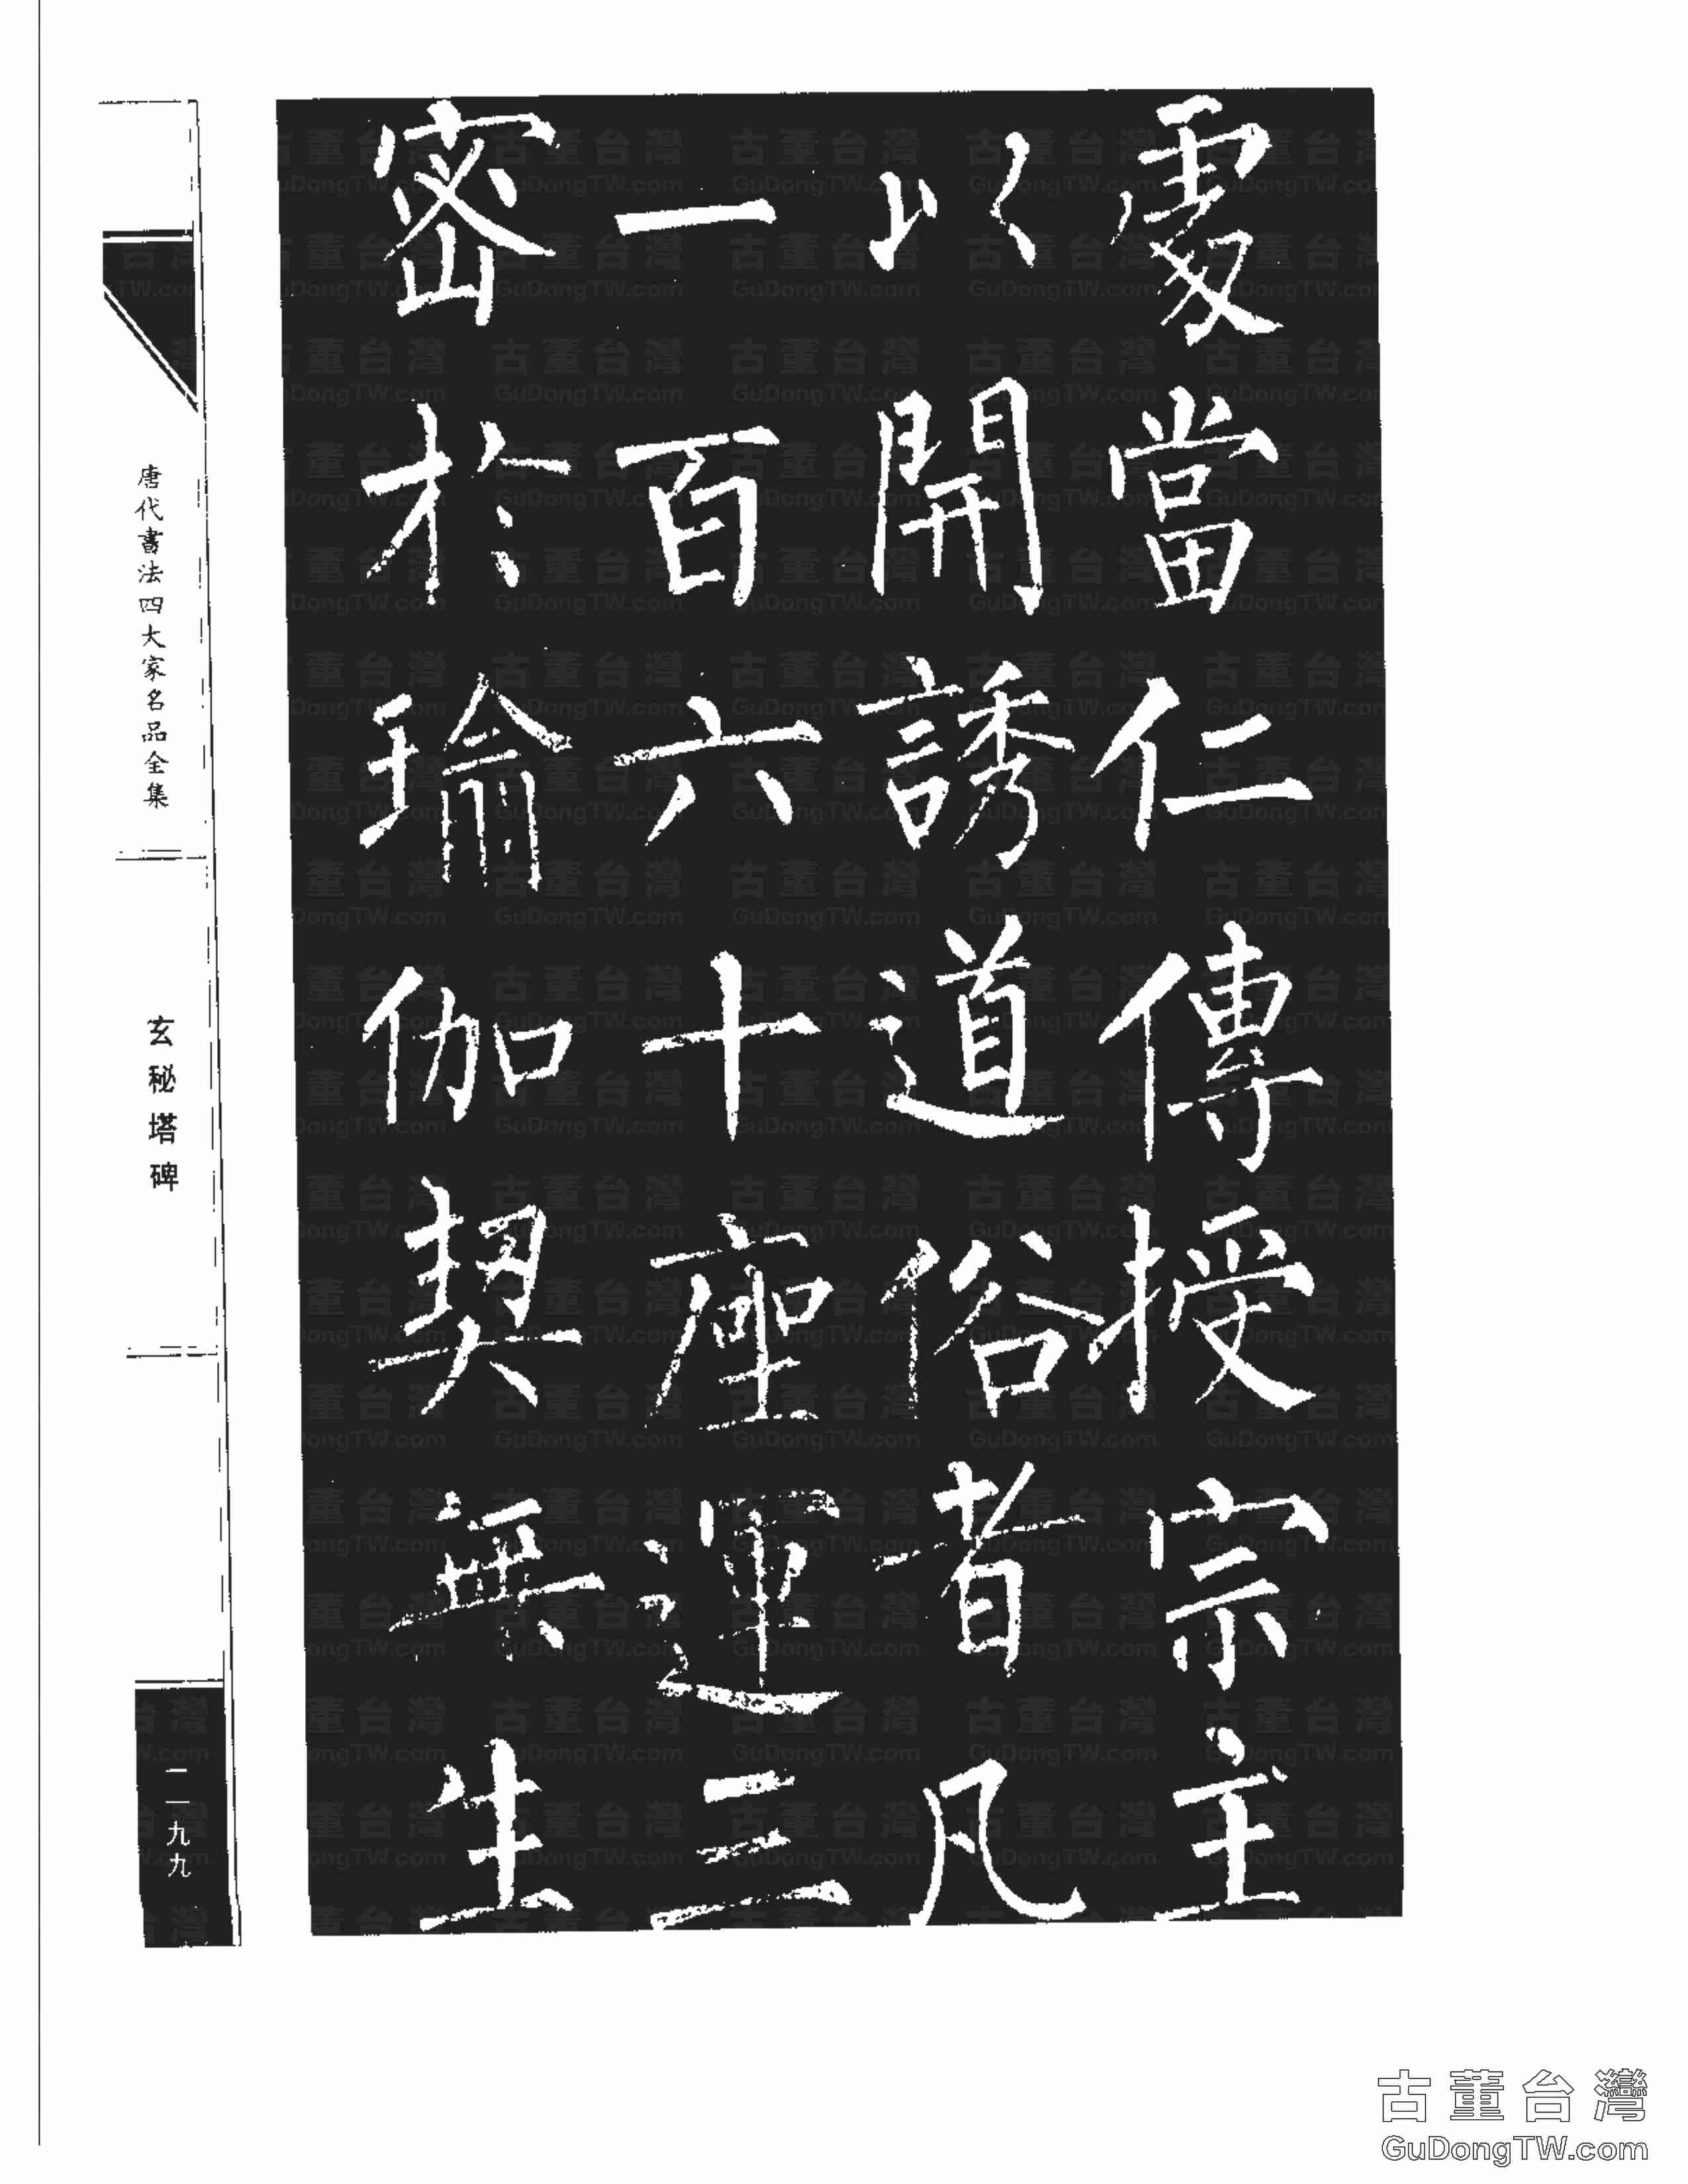 處當仁傳授宗主
以開誘道俗者凡
一百六十座運三
密於瑜伽契無生
唐代書法四大家名品全集
玄秘塔碑
二九九
古董台灣
GuDongTW.com